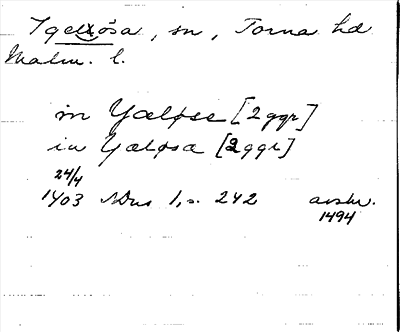 Igelösa, sn, Torna hd
Malm. l.
in Yæløse [2ggr]
in Yæløsa [2ggr]
24/4
1403 NDns 1, s. 242 avskr.
1494